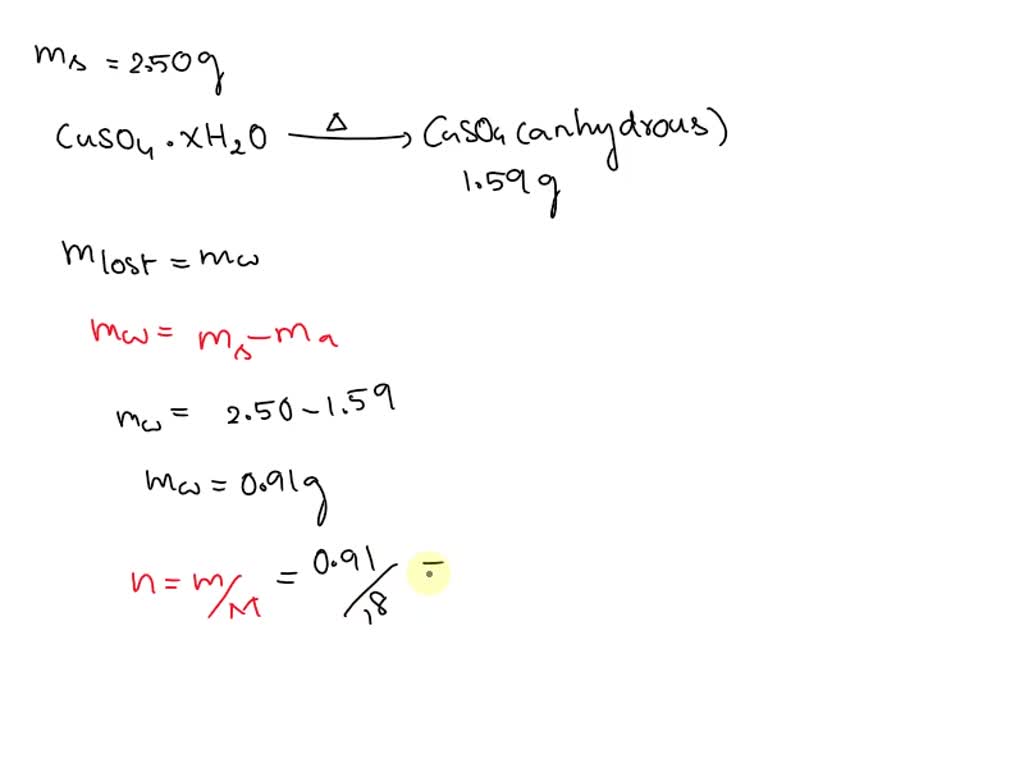 ms = 2.50g
CuSO4 . xH2O —Δ→ CuSO4 (anhydrous)
1.59g
mlost = mw
mw = ms - ma
mw = 2.50 - 1.59
mw = 0.91g
n = m/M = 0.91/18 =